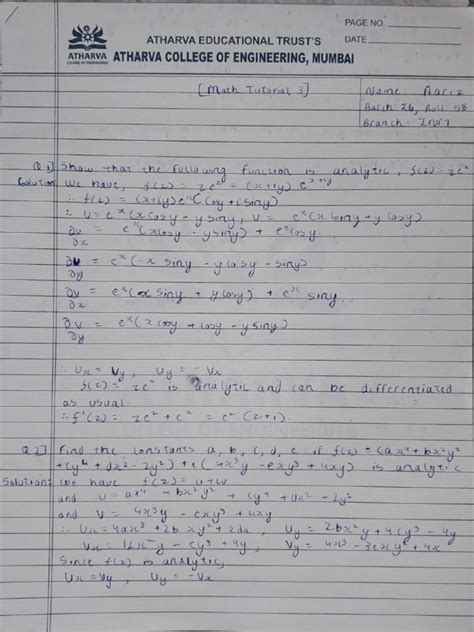 PAGE NO.
ATHARVA EDUCATIONAL TRUST'S DATE
ATHARVA ATHARVA COLLEGE OF ENGINEERING, MUMBAI
COLLEGE OF ENGINEERING
[Math Tutorial 3] Name: Aariz
Batch I6, Roll: 58
Branch:
Q 1] Show that the following function is analytic, f(z) = ze^z
Solution We have, f(z) = ze^z = (x+iy) e^x+iy
∴ f(z) = (x+iy)e^x(cosy + isiny)
∴ U = e^x(xcosy - ysiny), V = e^x(xsiny + ycosy)
∂u/∂x = e^x(xcosy - ysiny) + e^xcosy.
∂u/∂y = e^x(-xsiny - ycosy - siny)
∂v/∂x = e^x(xsiny + ycosy) + e^x siny
∂v/∂y = e^x(xcosy + cosy - ysiny)
∴ Ux = Vy, Uy = -Vx
∴ f(z) = ze^z is analytic and can be differentiated
as usual.
∴ f'(z) = ze^z + e^z = e^z(z+1).
Q 2] Find the constants a, b, c, d, e if f(z) = (ax^4 + bx^2y^2
+ cy^4 + dx^2 - 2y^2) + i(4x^3y - exy^3 + 4xy) is analytic
Solution: We have f(z) = u+iv
and U = ax^4 + bx^2y^2 + cy^4 + dx^2 - 2y^2
and V = 4x^3y - exy^3 + 4xy
∴ Ux = 4ax^3 + 2bxy^2 + 2dx, Uy = 2bx^2y + 4cy^3 - 4y
Vx = 12x^2y - ey^3 + 4y, Vy = 4x^3 - 3exy^2 + 4x
Since f(z) is analytic,
Ux = Vy, Uy = -Vx